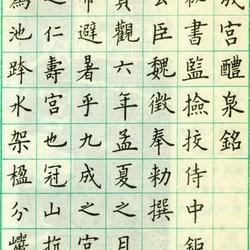 成宮醴泉銘
秘書監撿挍侍中鉅
公臣魏徵奉勅撰
貞觀六年孟夏之月
帝避暑乎九成之宮
之仁壽宮也冠山抗
爲池跨水架楹分巖